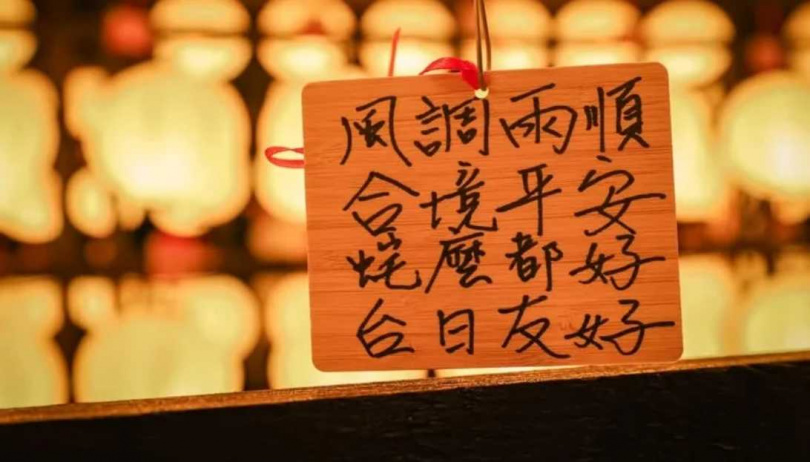 風調雨順
合境平安
蛇麼都好
台日友好